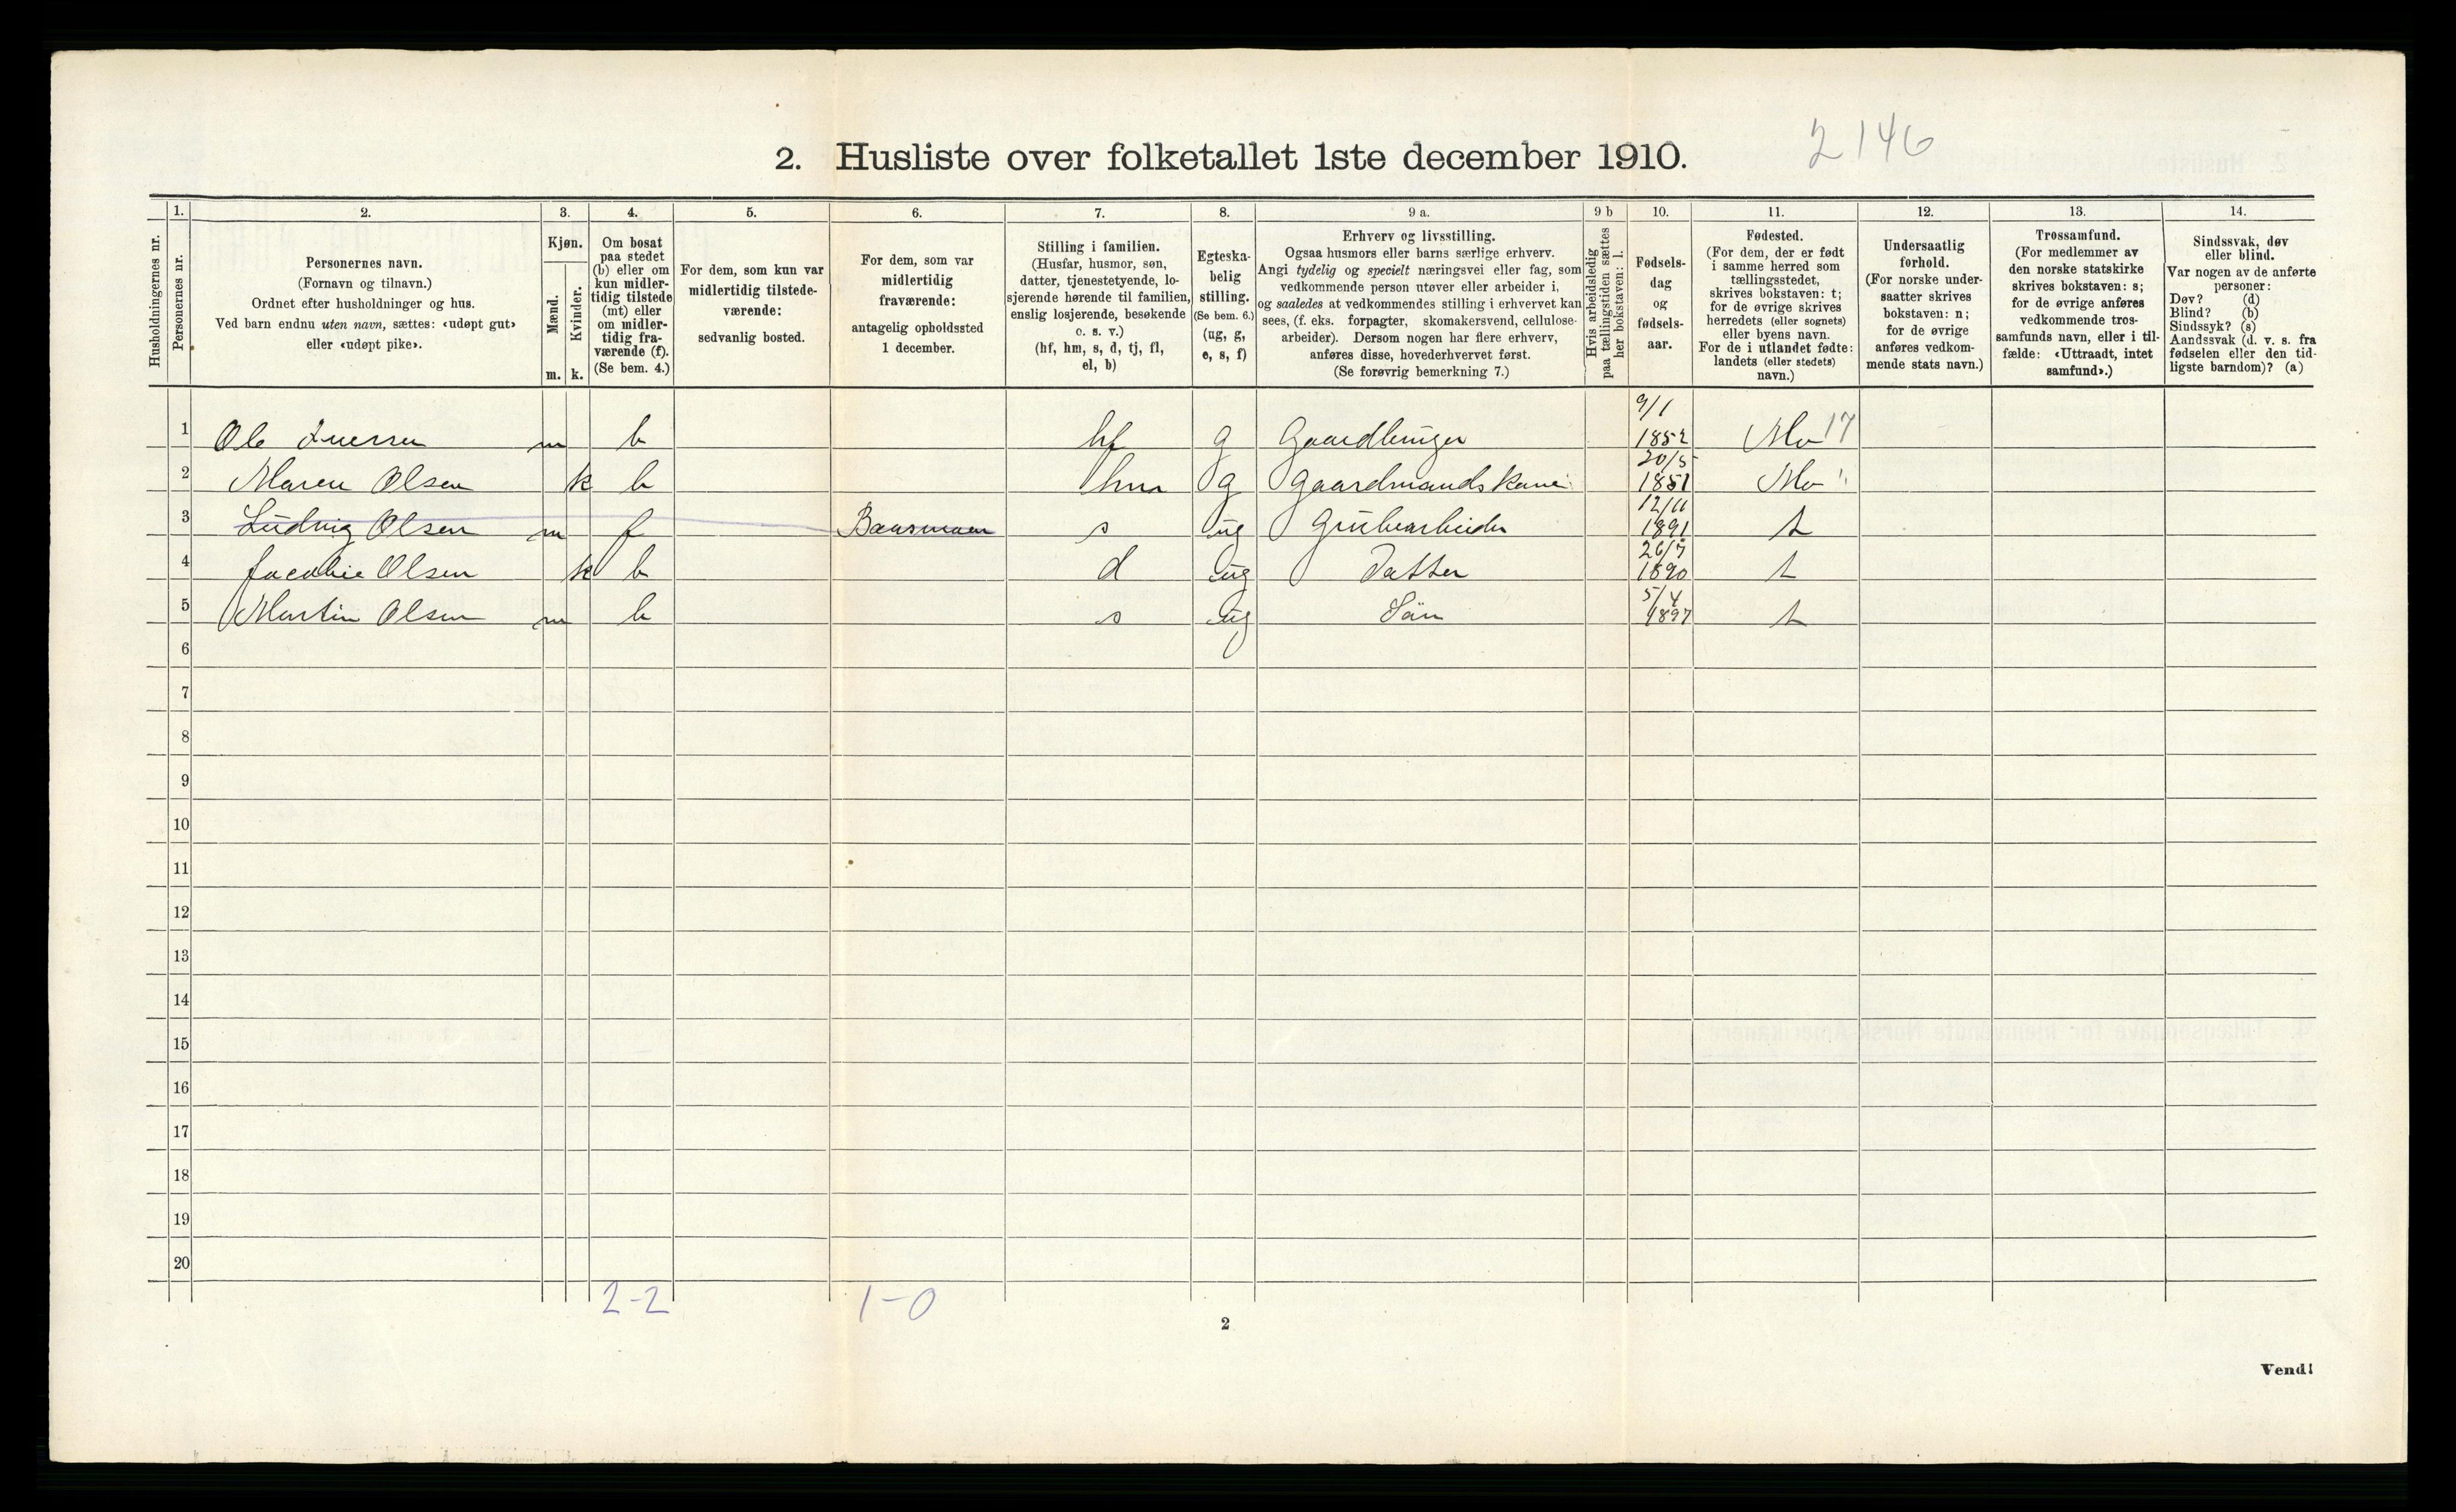 2. Husliste over folketallet 1ste december 1910.
2146
1. 2. 3. 4. 5. 6. 7. 8. 9 a. 9 b 10. 11. 12. 13. 14.
Husholdningernes nr.
Personernes nr.
Personernes navn.
(Fornavn og tilnavn.)
Ordnet efter husholdninger og hus.
Ved barn endnu uten navn, sættes: «udøpt gut»
eller «udøpt pike».
Kjøn.
Mænd.
Kvinder.
m. k.
Om bosat
paa stedet
(b) eller om
kun midler-
tidig tilstede
(mt) eller
om midler-
tidig fra-
værende (f).
(Se bem. 4.)
For dem, som kun var
midlertidig tilstede-
værende:
sedvanlig bosted.
For dem, som var
midlertidig
fraværende:
antagelig opholdssted
1 december.
Stilling i familien.
(Husfar, husmor, søn,
datter, tjenestetyende, lo-
sjerende hørende til familien,
enslig losjerende, besøkende
o. s. v.)
(hf, hm, s, d, tj, fl,
el, b)
Egteska-
belig
stilling.
(Se bem. 6.)
(ug, g,
e, s, f)
Erhverv og livsstilling.
Ogsaa husmors eller barns særlige erhverv.
Angi tydelig og specielt næringsvei eller fag, som
vedkommende person utøver eller arbeider i,
og saaledes at vedkommendes stilling i erhvervet kan
sees, (f. eks. forpagter, skomakersvend, cellulose-
arbeider). Dersom nogen har flere erhverv,
anføres disse, hovederhvervet først.
(Se forøvrig bemerkning 7.)
Hvis arbeidsledig
paa tællingstiden sættes
her bokstaven: l.
Fødsels-
dag
og
fødsels-
aar.
Fødested.
(For dem, der er født
i samme herred som
tællingsstedet,
skrives bokstaven: t;
for de øvrige skrives
herredets (eller sognets)
eller byens navn.
For de i utlandet fødte:
landets (eller stedets)
navn.)
Undersaatlig
forhold.
(For norske under-
saatter skrives
bokstaven: n;
for de øvrige
anføres vedkom-
mende stats navn.)
Trossamfund.
(For medlemmer av
den norske statskirke
skrives bokstaven: s;
for de øvrige anføres
vedkommende tros-
samfunds navn, eller i til-
fælde: «Uttraadt, intet
samfund».)
Sindssvak, døv
eller blind.
Var nogen av de anførte
personer:
Døv? (d)
Blind? (b)
Sindssyk? (s)
Aandssvak (d. v. s. fra
fødselen eller den tid-
ligste barndom)? (a)
1 Ole m b hf g Gaardbruger 9/1 1852 Mo 17
2 Maren Olsen k b hm g Gaardmandskone 20/5 1851 Mo "
3 Ludvig Olsen m f Baasmoen s ug Grubearbeider 12/11 1891 t
4 Jacobie Olsen k b d ug Datter 26/7 1890 t
5 Martin Olsen m b s ug Sön 5/4 1897 t
6
7
8
9
10
11
12
13
14
15
16
17
18
19
20
2-2 1-0
2
Vend!